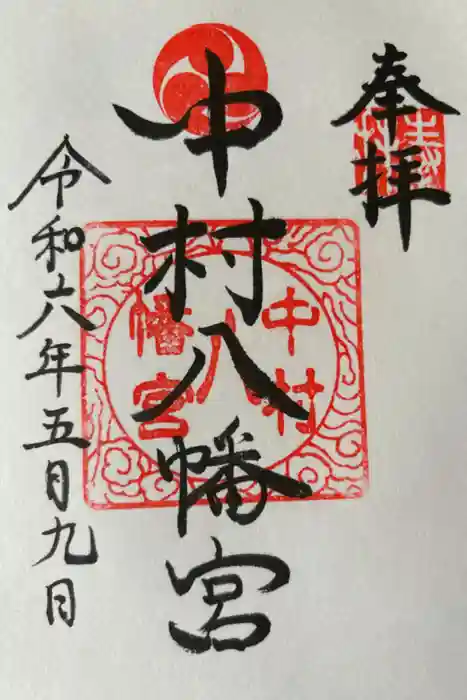 奉拝
中村八幡宮
中村
八
幡宮
令和六年五月九日